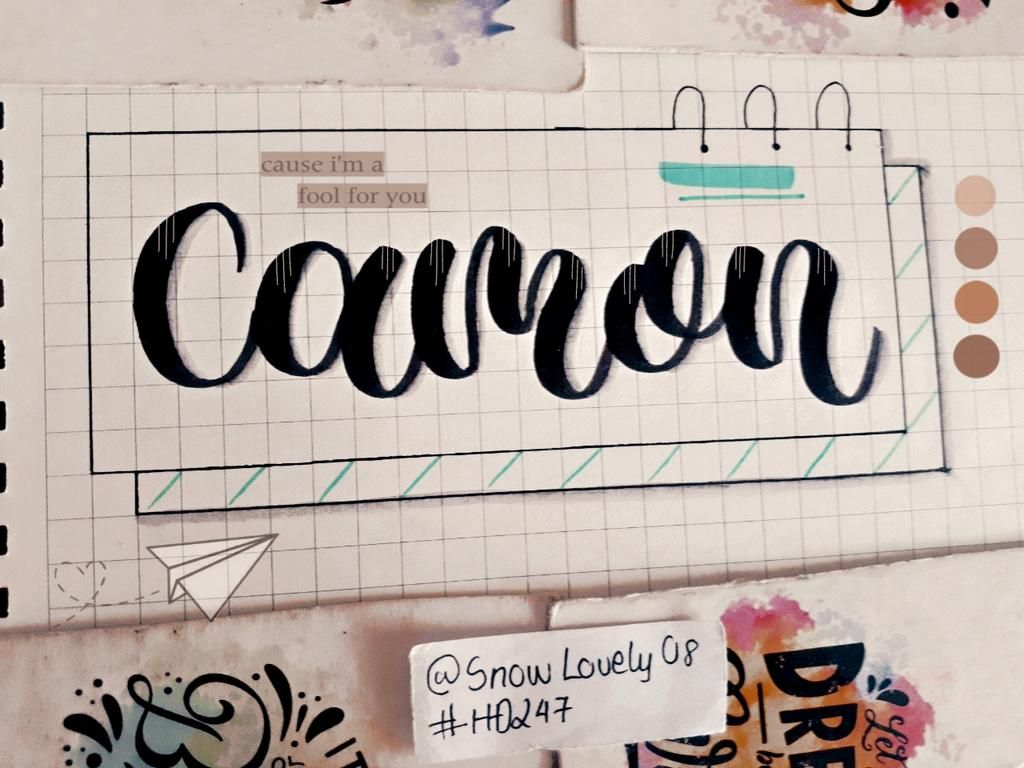 cause i'm a
fool for you
Camon
@Snow Lovely 08
#HD247
&
DRE
Let